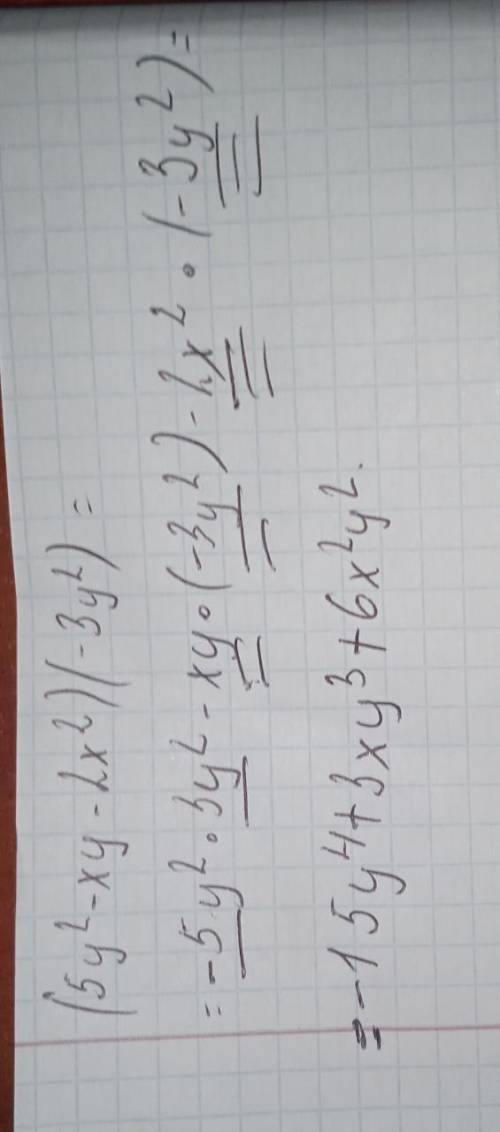 (5y²-xy-2x²)(-3y²)=
=-5y²·3y²-xy·(-3y²)-2x²·(-3y²)=
=-15y⁴+3xy³+6x²y².